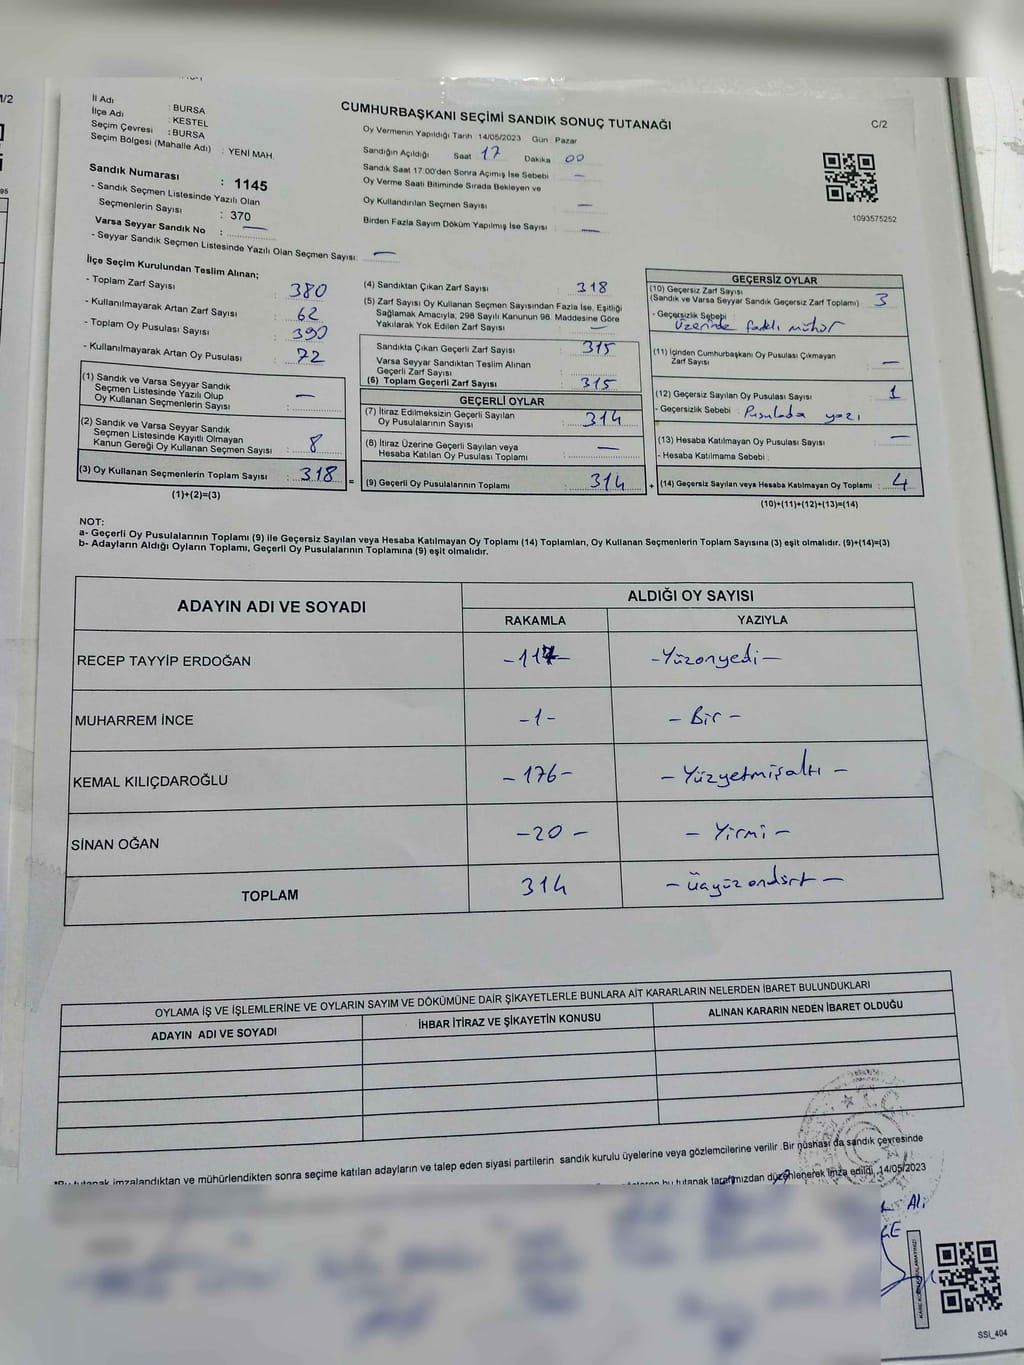 İl Adı : BURSA
İlçe Adı : KESTEL
Seçim Çevresi : BURSA
Seçim Bölgesi (Mahalle Adı) : YENİ MAH.
CUMHURBAŞKANI SEÇİMİ SANDIK SONUÇ TUTANAĞI
C/2
Oy Vermenin Yapıldığı Tarih 14/05/2023 Gün : Pazar
Sandığın Açıldığı Saat 17 Dakika 00
Sandık Saat 17.00'den Sonra Açımış İse Sebebi —
Oy Verme Saati Bitiminde Sırada Bekleyen ve
Oy Kullandırılan Seçmen Sayısı —
Birden Fazla Sayım Döküm Yapılmış İse Sayısı : —
1093575252
Sandık Numarası : 1145
- Sandık Seçmen Listesinde Yazılı Olan
Seçmenlerin Sayısı : 370
Varsa Seyyar Sandık No : —
- Seyyar Sandık Seçmen Listesinde Yazılı Olan Seçmen Sayısı: —
İlçe Seçim Kurulundan Teslim Alınan;
- Toplam Zarf Sayısı : 380
- Kullanılmayarak Artan Zarf Sayısı : 62
- Toplam Oy Pusulası Sayısı : 390
- Kullanılmayarak Artan Oy Pusulası : 72
(1) Sandık ve Varsa Seyyar Sandık
Seçmen Listesinde Yazılı Olup
Oy Kullanan Seçmenlerin Sayısı : —
(2) Sandık ve Varsa Seyyar Sandık
Seçmen Listesinde Kayıtlı Olmayan
Kanun Gereği Oy Kullanan Seçmen Sayısı : 8
(3) Oy Kullanan Seçmenlerin Toplam Sayısı : 318 =
(1)+(2)=(3)
(4) Sandıktan Çıkan Zarf Sayısı : 318
(5) Zarf Sayısı Oy Kullanan Seçmen Sayısından Fazla İse, Eşitliği
Sağlamak Amacıyla, 298 Sayılı Kanunun 98. Maddesine Göre
Yakılarak Yok Edilen Zarf Sayısı : —
Sandıkta Çıkan Geçerli Zarf Sayısı : 315
Varsa Seyyar Sandıktan Teslim Alınan
Geçerli Zarf Sayısı :
(6) Toplam Geçerli Zarf Sayısı : 315
GEÇERLİ OYLAR
(7) İtiraz Edilmeksizin Geçerli Sayılan
Oy Pusulalarının Sayısı : 314
(8) İtiraz Üzerine Geçerli Sayılan veya
Hesaba Katılan Oy Pusulası Toplamı : —
(9) Geçerli Oy Pusulalarının Toplamı : 314 +
GEÇERSİZ OYLAR
(10) Geçersiz Zarf Sayısı
(Sandık ve Varsa Seyyar Sandık Geçersiz Zarf Toplamı) : 3
- Geçersizlik Sebebi :
üzerinde farklı mühür
(11) İçinden Cumhurbaşkanı Oy Pusulası Çıkmayan
Zarf Sayısı : —
(12) Geçersiz Sayılan Oy Pusulası Sayısı : 1
- Geçersizlik Sebebi : Pusulada yazı
(13) Hesaba Katılmayan Oy Pusulası Sayısı : —
- Hesaba Katılmama Sebebi :
(14) Geçersiz Sayılan veya Hesaba Katılmayan Oy Toplamı : 4
(10)+(11)+(12)+(13)=(14)
NOT:
a- Geçerli Oy Pusulalarının Toplamı (9) ile Geçersiz Sayılan veya Hesaba Katılmayan Oy Toplamı (14) Toplamları, Oy Kullanan Seçmenlerin Toplam Sayısına (3) eşit olmalıdır. (9)+(14)=(3)
b- Adayların Aldığı Oyların Toplamı, Geçerli Oy Pusulalarının Toplamına (9) eşit olmalıdır.
ADAYIN ADI VE SOYADI ALDIĞI OY SAYISI
RAKAMLA YAZIYLA
RECEP TAYYİP ERDOĞAN -117- -Yüzonyedi-
MUHARREM İNCE -1- -Bir-
KEMAL KILIÇDAROĞLU -176- -Yüzyetmişaltı-
SİNAN OĞAN -20- -Yirmi-
TOPLAM 314 -Üçyüzondört-
OYLAMA İŞ VE İŞLEMLERİNE VE OYLARIN SAYIM VE DÖKÜMÜNE DAİR ŞİKAYETLERLE BUNLARA AİT KARARLARIN NELERDEN İBARET BULUNDUKLARI
ADAYIN ADI VE SOYADI İHBAR İTİRAZ VE ŞİKAYETİN KONUSU ALINAN KARARIN NEDEN İBARET OLDUĞU
*Bu tutanak imzalandıktan ve mühürlendikten sonra seçime katılan adayların ve talep eden siyasi partilerin sandık kurulu üyelerine veya gözlemcilerine verilir. Bir nüshası da sandık çevresinde
bu tutanak tarafımızdan düzenlenerek imza edildi. 14/05/2023
Ali
SSI_404